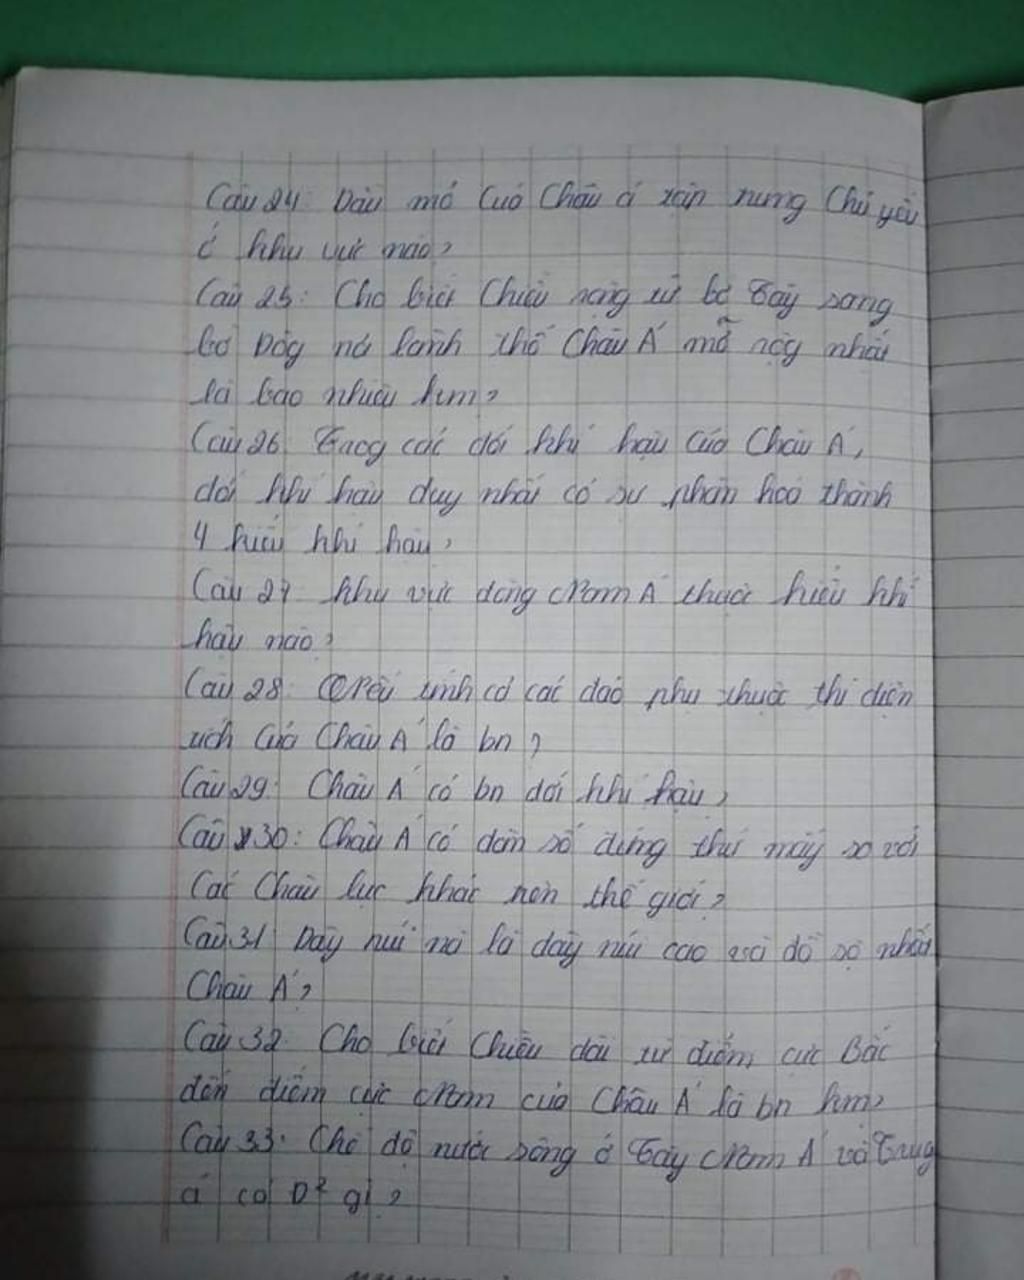 Câu 24: Dầu mỏ của Châu á tập trung chủ yếu
ở khu vực nào?
Câu 25: Cho biết chiều rộng từ bờ Tây sang
bờ Đông nơi lãnh thổ Châu Á mở rộng nhất
là bao nhiêu km?
Câu 26: Trong các đới khí hậu của Châu Á,
đới khí hậu duy nhất có sự phân hoá thành
4 kiểu khí hậu?
Câu 27: Khu vực đông Nam Á thuộc kiểu khí
hậu nào?
Câu 28: Nếu tính cả các đảo phụ thuộc thì diện
tích của Châu Á là bn?
Câu 29: Châu Á có bn đới khí hậu?
Câu 30: Châu Á có dân số đứng thứ mấy so với
các Châu lục khác trên thế giới?
Câu 31 Dãy núi nà là dãy núi cao và đồ sộ nhất
Châu Á?
Câu 32: Cho biết chiều dài từ điểm cực Bắc
đến điểm cực Nam của Châu Á là bn km?
Câu 33: Chế độ nước sông ở Tây Nam Á và Trung
á có Đ² gì?